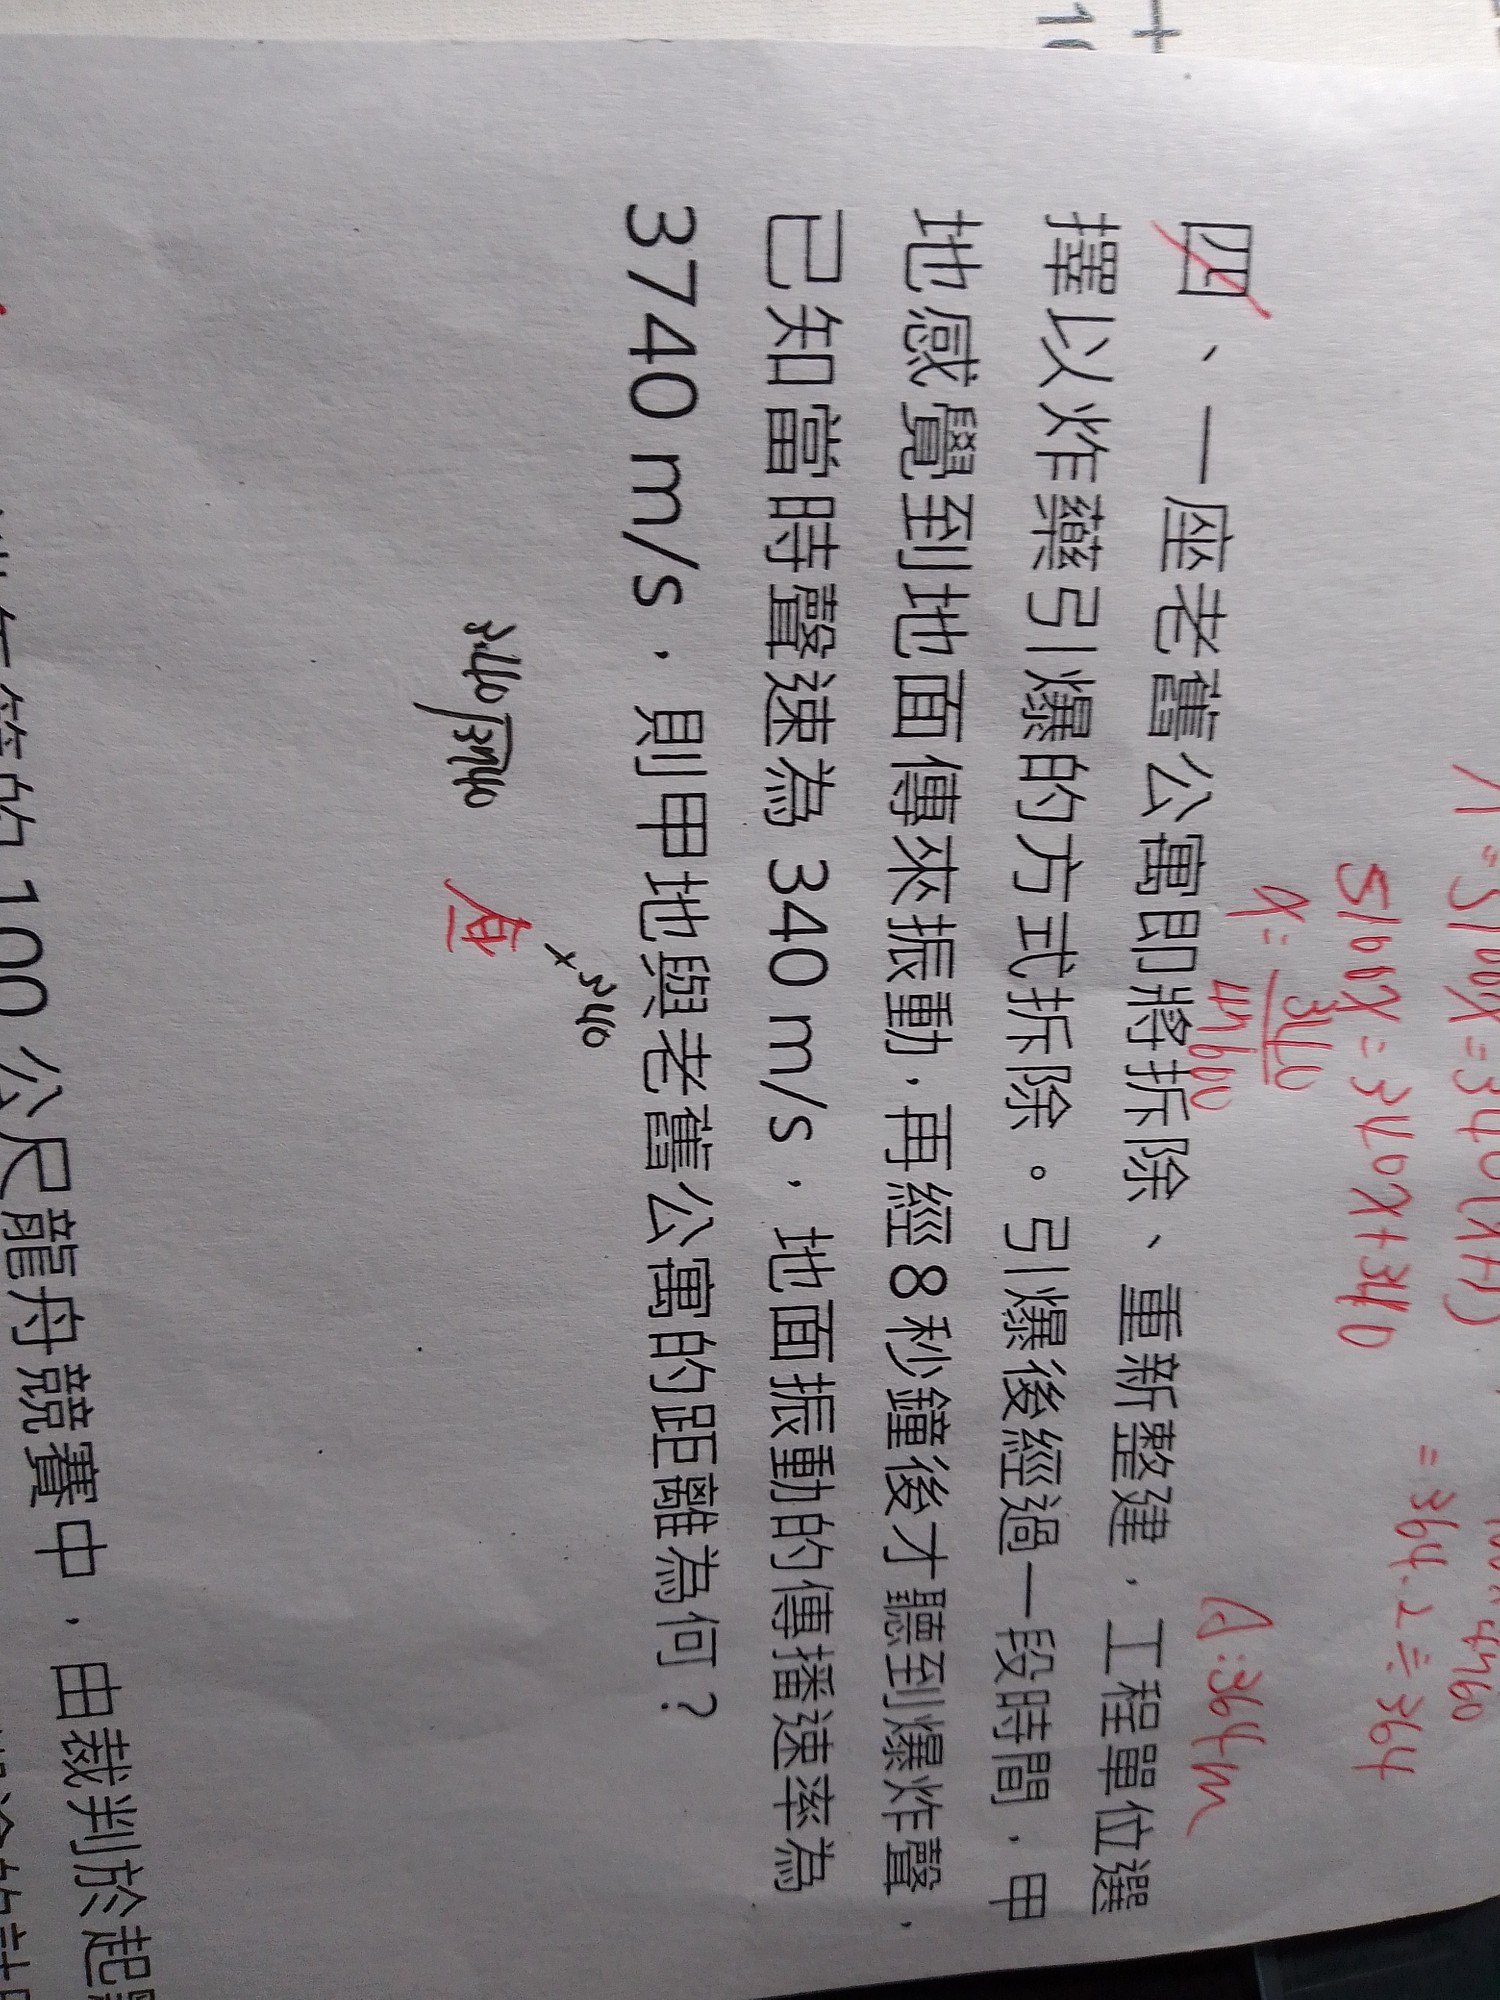 5100x = 340(x+1)
5100x = 340x+340
x = 340
4760
4760
= 364.2 ≒ 364
A:364m
四、一座老舊公寓即將拆除、重新整建，工程單位選
擇以炸藥引爆的方式拆除。引爆後經過一段時間，甲
地感覺到地面傳來振動，再經8秒鐘後才聽到爆炸聲，
已知當時聲速為 340 m/s，地面振動的傳播速率為
3740 m/s，則甲地與老舊公寓的距離為何？
340
3740
100 公尺龍舟競賽中，由裁判於起